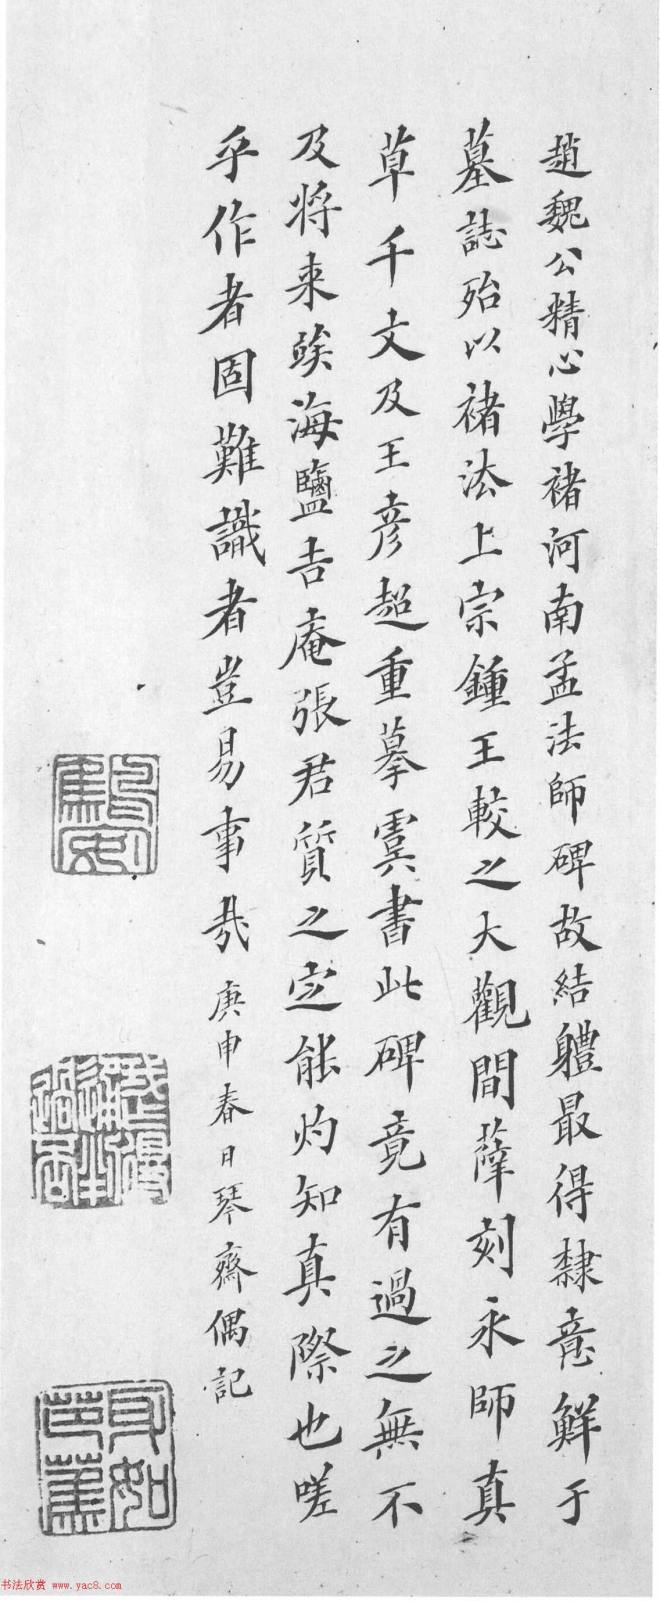 趙魏公精心學褚河南孟法師碑故結軆最得隸意鮮于
墓誌殆以褚法上宗鍾王較之大觀間薛刻永師真
草千文及王彦超重摹虞書此碑竟有過之無不
及將来俟海鹽吉庵張君質之定能灼知真際也嗟
乎作者固難識者豈易事哉庚申春日琴齋偶記
身如
芭蕉
书法欣赏 www.yac8.com